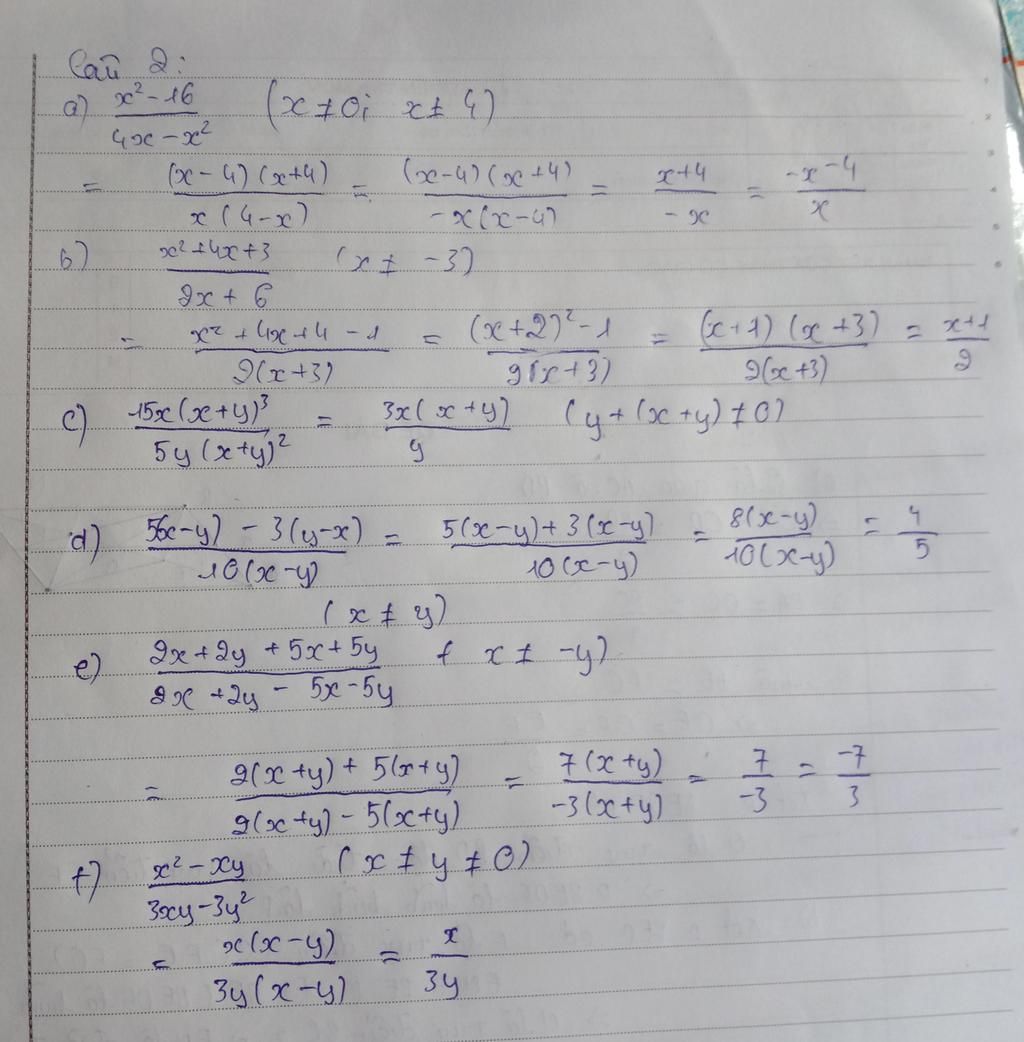 Bài 2:
a) (x² - 16)/(4x - x²) (x ≠ 0; x ≠ 4)
= ((x-4)(x+4))/(x(4-x)) = ((x-4)(x+4))/(-x(x-4)) = (x+4)/(-x) = (-x-4)/x
b) (x²+4x+3)/(2x+6) (x ≠ -3)
= (x²+4x+4-1)/(2(x+3)) = ((x+2)²-1)/(2(x+3)) = ((x+1)(x+3))/(2(x+3)) = (x+1)/2
c) (15x(x+y)³)/(5y(x+y)²) = (3x(x+y))/y (y+(x+y) ≠ 0)
d) (5(x-y) - 3(y-x))/(10(x-y)) = (5(x-y)+3(x-y))/(10(x-y)) = (8(x-y))/(10(x-y)) = 4/5
(x ≠ y)
e) (2x+2y+5x+5y)/(2x+2y-5x-5y) (x ≠ -y)
= (2(x+y)+5(x+y))/(2(x+y)-5(x+y)) = (7(x+y))/(-3(x+y)) = 7/(-3) = -7/3
f) (x²-xy)/(3xy-3y²) (x ≠ y ≠ 0)
= (x(x-y))/(3y(x-y)) = x/(3y)